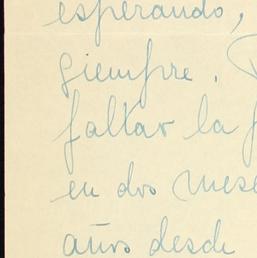 esperando,
siempre.
faltar la
en dos mese
años desde